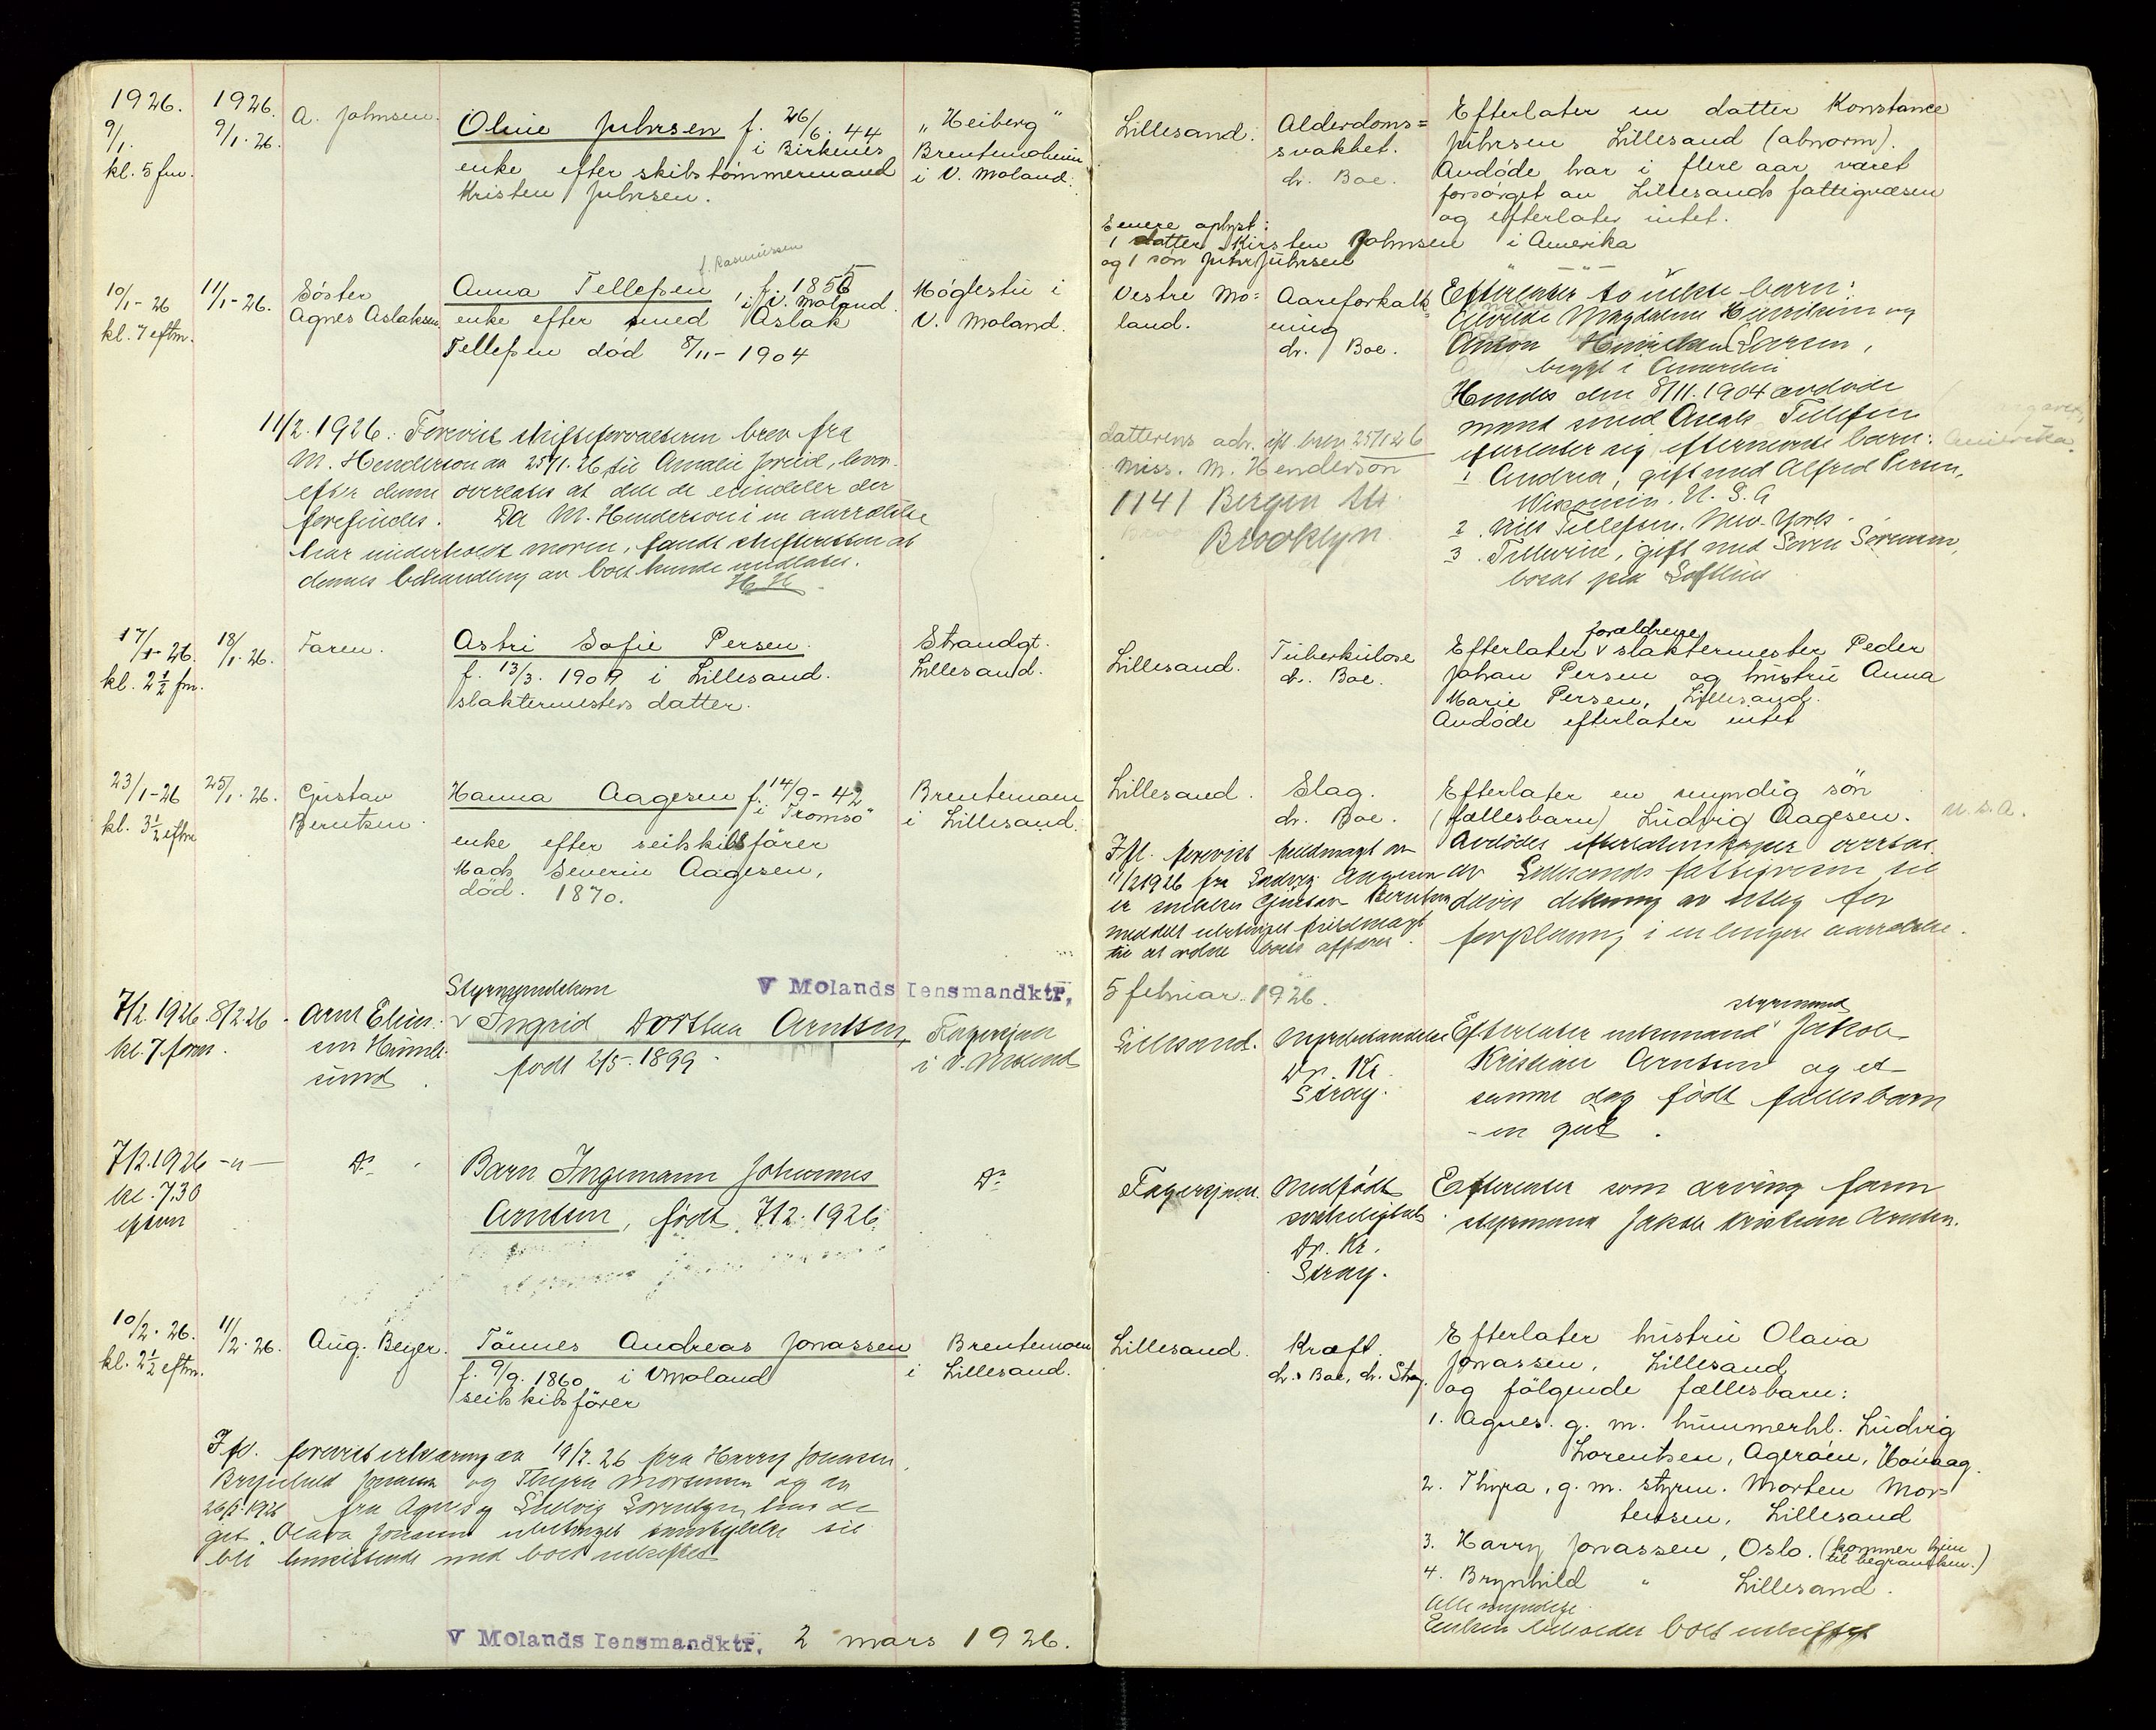 1926.
9/1.
kl. 5 fm.
1926.
9/1.26.
A. Johnsen.
Oline Juhrsen f. 26/6.44
i Birkenes
enke efter skibstømmermand
Kristen Juhrsen.
"Heiberg"
Brentemoheim
i V. Moland.
Lillesand.
Alderdoms=
svakhet.
dr. Boe.
Efterlater en datter Konstance
Juhrsen Lillesand (abnorm).
Avdøde har i flere aar været
forsørget av Lillesands fattigvæsen
og efterlater intet.
Senere oplyst:
1 datter Kirsten Johnsen i Amerika
og 1 søn Juhrsen
10/1-26
kl. 7 eftm.
11/1-26.
Søster
Agnes Aslaksen.
f. Rasmussen
Anna Tellefsen f. 1855
i V. Moland.
enke efter smed Aslak
Tellefsen død 8/11-1904
Møglestu i
V. Moland.
Vestre Mo=
land.
Aareforkalk=
ning
dr. Boe.
Efterlater to uekte barn:
Magdalene og
Larsen,
bygt i Amerika
Hendes den 8/11.1904 avdøde
mand smed Tellefsen
efterlater sig efternevnte barn:
1 Andrea, gift med Alfred
Wisconsin. U.S.A
2. Nils Tellefsen. New York.
3. gift med Søren Sørensen,
bosat paa
Amerika.
11/2.1926. Forevist skifteforvalteren brev fra
M. Henderson av 25/1.26 til Amalie
efter denne overlates at dele de eiendeler der
forefindes. Da M. Henderson i en aarrække
har underholdt moren, fandt skifteretten at
dennes behandling av boet kunde undlates.
H H
datterens adr. ifl. brev 25/1 26
Miss. M. Henderson
1141 Bergen Str.
Brooklyn.
17/1-26.
kl. 2 1/2 fm.
18/1.26.
Faren.
Astri Sofie Persen.
f. 13/3.1909 i Lillesand.
slaktermesters datter.
Strandgt.
Lillesand.
Lillesand.
Tuberkulose
dr. Boe.
forældrene
Efterlater v slaktermester Peder
Johan Persen og hustru Anna
Marie Persen, Lillesand.
Avdøde efterlater intet
23/1-26
kl. 3 1/2 eftm
25/1.26.
Gustav
Berntsen.
Hanna Aagesen f. 14/9-42
i Tromsø
enke efter seilskibsfører
Mads Severin Aagesen,
død. 1870.
Brentemoen
i Lillesand.
Lillesand.
Slag.
dr. Boe.
Efterlater en myndig søn
(fællesbarn) Ludvig Aagesen.
U.S.A.
Avdødes efterladenskaper overtas
av Lillesands fattigvesen til
delvis dekning av utlæg for
forpleining i en lengere aarrække.
Ifl. forevist fuldmagt av
11/2 1926 fra Ludvig Aagesen
er Gustav Berntsen
meddelt ubetinget fuldmagt
til at ordne boets affærer.
V Molands lensmandktr, 5 februar 1926.
7/2.1926
kl. 7 form.
8/2-26
Arnt
Styrmandskone
v Ingrid Dorthea Arntsen,
født 2/5-1899.
i V. Moland
Lillesand.
Dr. Kr.
Stray.
styrmand
Efterlater enkemand Jakob
Kristian Arntsen og et
samme dag født fællesbarn
- en gut.
7/2.1926
kl. 7.30
-"-
Do
Barn Ingemann Johannes
Arntsen, født 7/2.1926.
Do
Medfødt
svakelighet.
Dr. Kr.
Stray.
Efterlater som arving faren
styrmand Jakob Kristian Arntsen.
10/2.26.
kl. 2 1/2 eftm.
11/2.26.
Aug. Beyer.
Tønnes Andreas Jonassen
f. 9/9.1860 i V. Moland
seilskibsfører
Brentemoen
i Lillesand.
Lillesand.
Kræft.
dr. Boe, dr. Stray.
Efterlater hustru Olava
Jonassen, Lillesand
og følgende fællesbarn:
1. Agnes. g. m. hummerhl. Ludvig
Lorentsen, Agerøen, Høvaag.
2. Thyra, g. m. styrm. Morten Mor=
tensen, Lillesand
3. Harry Jonassen, Oslo. (kommer hjem
til begravelsen.)
4. Brynhild " Lillesand.
Alle myndige.
Enken beholder boet uskiftet
Ifl. forevist erklæring av 19/2.26 fra Harry Jonassen,
Brynhild Jonassen og Thyra Mortensen og av
26/2.1926 fra Agnes og Ludvig Lorentsen, har de
git Olava Jonassen ubetinget samtykke til
bli hensittende med boet uskiftet
V Molands lensmandktr, 2 mars 1926.